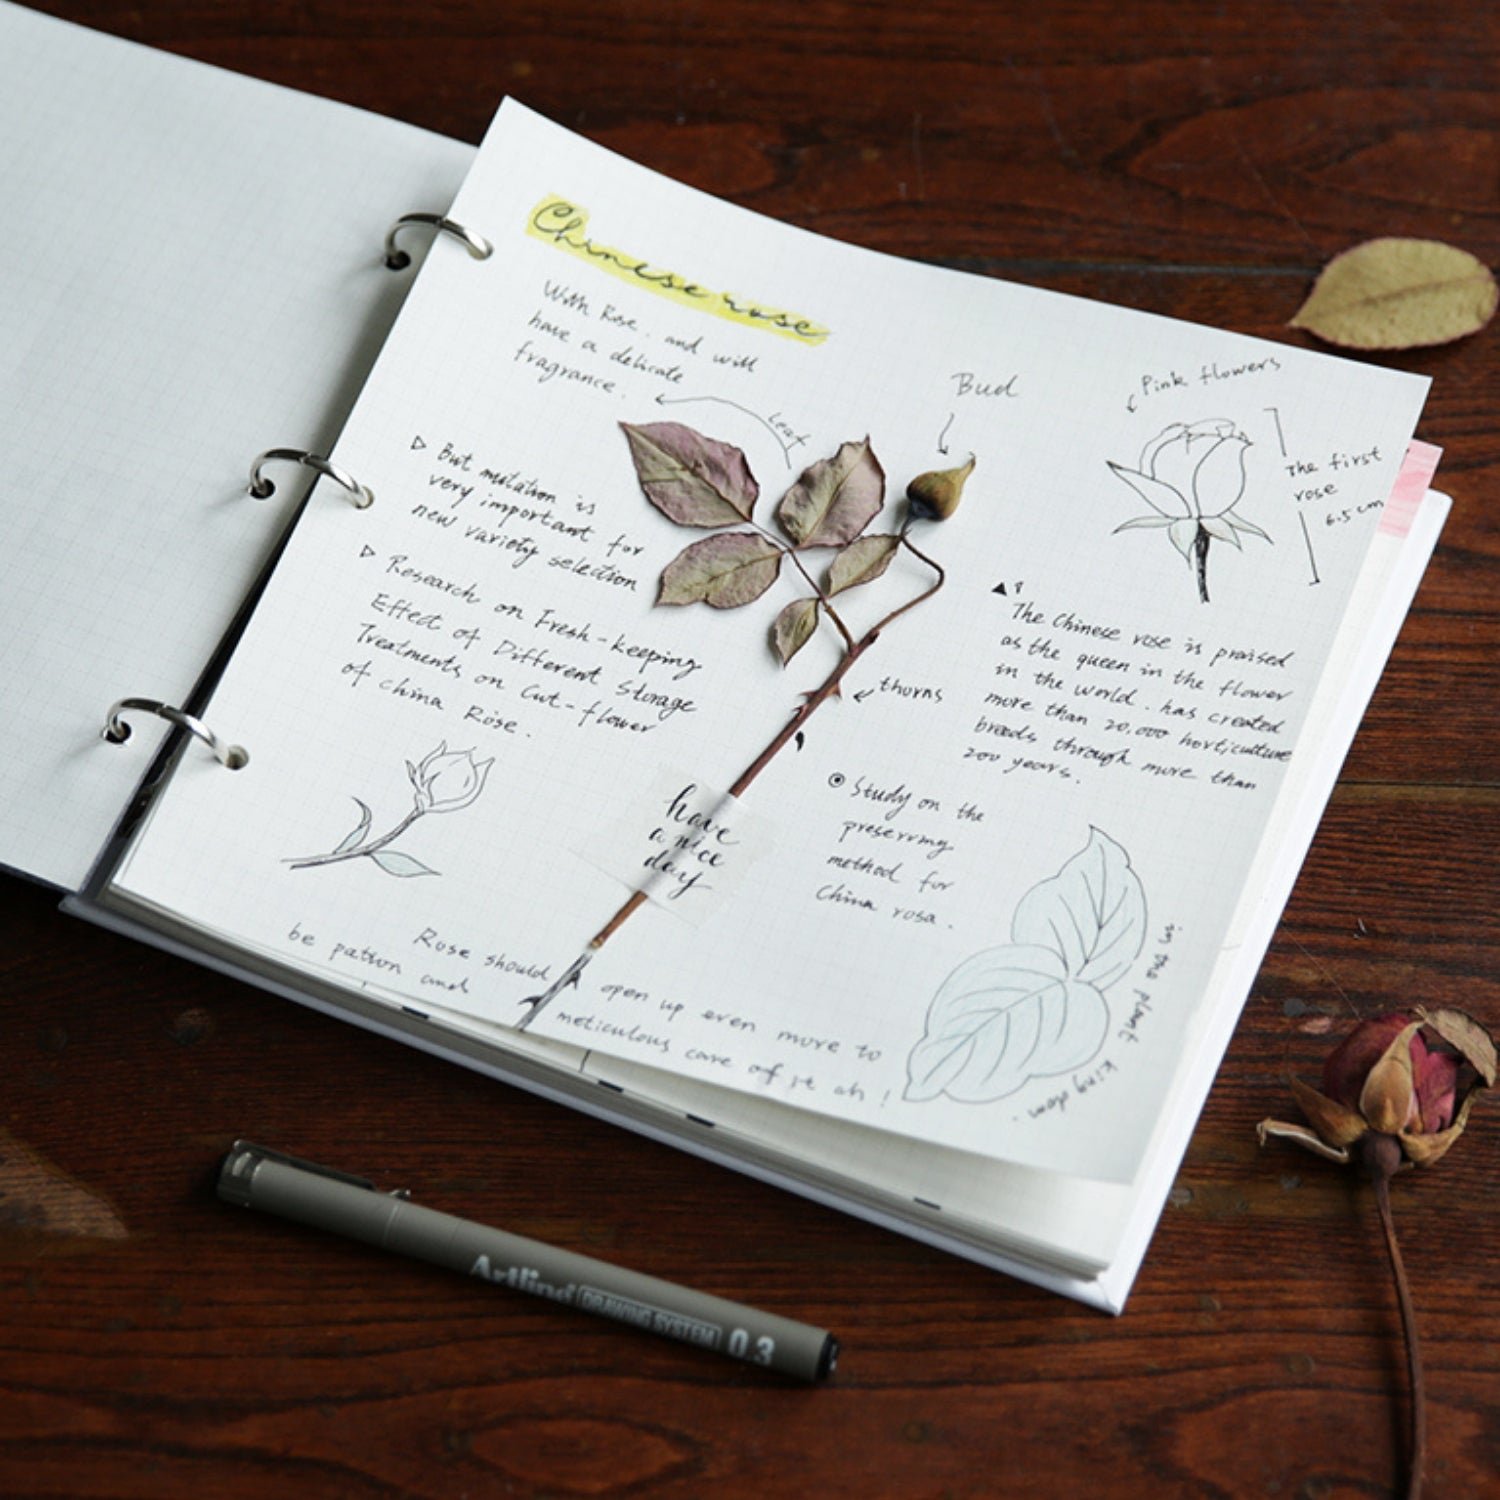 Chinese rose
With Rose. and with
have a delicate
fragrance.
Leaf
Bud
Pink flowers
The first
rose
6.5 cm
▷ But mutation is
very important for
new variety selection
▷ Research on Fresh-keeping
Effect of Different Storage
Treatments on Cut-flower
of china Rose.
thorns
The Chinese rose is praised
as the queen in the flower
in the world. has created
more than 20,000 horticulture
breeds through more than
200 years.
have
a nice
day
Study on the
preserving
method for
China rosa.
in the plant kingdom.
Rose should open up even more to
be patron and meticulous care of it ah!
Artline DRAWING SYSTEM 0.3